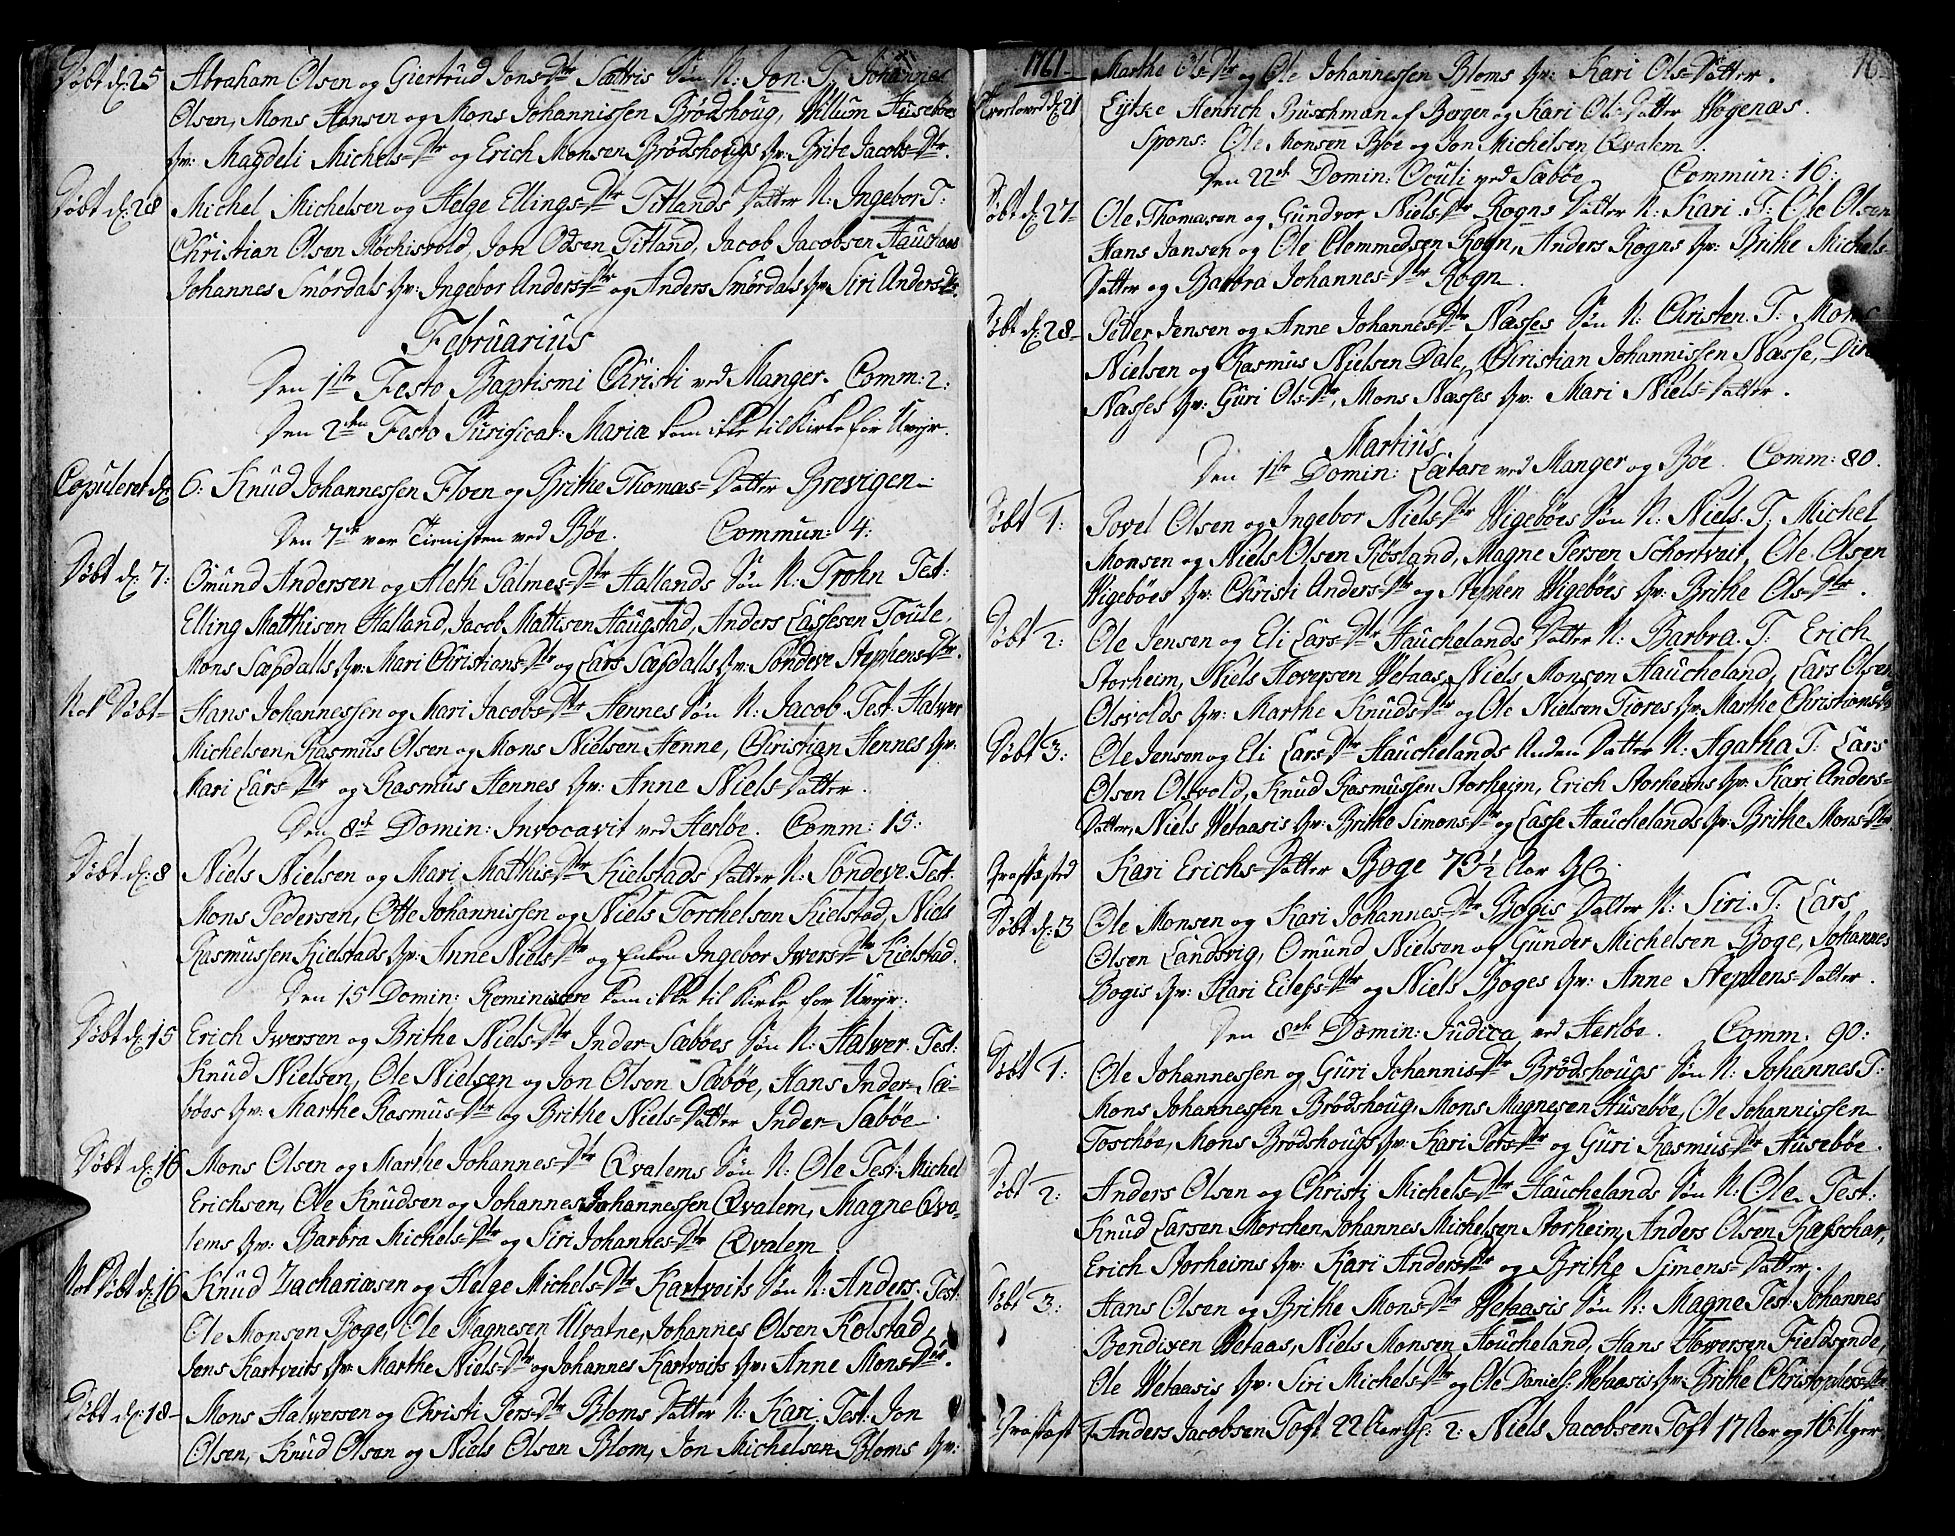 Døbt d: 25 Abraham Olsen og Giertrud Jons-Dtr Sættris Søn N: Jon. T: Johannes
Olsen, Mons Hansen og Mons Johannissen Brødshoug, Willum Husebøes
Qv: Magdeli Michels-Dtr og Erich Monsen Brødshougs Qv: Brite Jacobs-Dtr.
Døbt d: 28 Michel Michelsen og Helge Ellings-Dtr Titlands Datter N: Ingebor T:
Christian Olsen Kochisvold, Jon Odsen Titland, Jacob Jacobsen
Johannes Smørdals Qv: Ingebor Anders-Dtr og Anders Smørdals Qv: Siri Anders-Dtr.
Februarius
Den 1ste Festo Baptismi Christi ved Manger. Comm: 2:
Den 2den Festo Purificat: Mariæ kom ikke til Kirke for Uvejr.
Copuleret d: 6: Knud Johannessen Floen og Brithe Thomas-Datter Brevigen
Den 7de var Tienisten ved Bøe. Commun: 4:
Døbt d: 7: Omund Andersen og Aleth Palmes-Dtr Hallands Søn N: Trohn Test:
Elling Matthisen Halland, Jacob Mattisen Haugstad, Anders Lassesen Toule,
Mons Sæpdalls Qv: Mari Christians-Dtr og Lars Sæpdalls Qv: Søndeve Stephens-Dtr.
Nok Døbt Hans Johannessen og Mari Jacobs-Dtr Hennes Søn N: Jacob Test: Halver
Michelsen, Rasmus Olsen og Mons Nielsen Henne, Christian Hennes Qv:
Mari Lars-Dtr og Rasmus Hennes Qv: Anne Niels-Datter.
Den 8de Domin: Invocavit ved Herløe. Comm: 15:
Døbt d: 8 Niels Nielsen og Mari Mathis-Dtr Kielstads Datter N: Søndeve Test:
Mons Pedersen, Otte Johannissen og Niels Torchelsen Kielstad, Niels
Rasmussen Kielstads Qv: Anne Niels-Dtr og Enken Ingebor Ivers-Dtr Kielstad.
Den 15 Domin: Reminiscere kom ikke til Kirke for Uvejr:
Døbt d: 15 Erich Iversen og Brithe Niels-Dtr Inder-Sæbøes Søn N: Halver. Test:
Knud Nielsen, Ole Nielsen og Jon Olsen Sæbøe, Hans Inder-Sæ-
bøes Qv: Marthe Rasmus-Dtr og Brithe Niels-Datter Inder-Sæbøe
Døbt d: 16 Mons Olsen og Marthe Johannes-Dtr Qvalems Søn N: Ole Test: Michel
Erichsen, Ole Knudsen og Johannes Johannessen Qvalem, Magne Qva-
lems Qv: Barbra Michels-Dtr og Siri Johannes-Dtr Qvalem
Nok Døbt d: 16 Knud Zachariæsen og Helge Michels-Dtr Kartveits Søn N: Anders. Test:
Ole Monsen Boge, Ole Magnesen Ulvatne, Johannes Olsen Kolstad,
Jens Kartveits Qv: Marthe Niels-Dtr og Johannes Kartveits Qv: Anne Mons-Dtr.
Døbt d: 18 Mons Halversen og Christi Pers-Dtr Bloms Datter N: Kari. Test: Jon
Olsen, Knud Olsen og Niels Olsen Blom, Jon Michelsen Bloms Qv:
1761 Marthe Ols-Dtr og Ole Johannessen Bloms Qv: Kari Ols-Datter. 16
Trolovet d: 21 Eytke Henrich Buschman af Bergen og Kari Ols-Datter Wogenæs.
Spons: Ole Monsen Bøe og Jon Michelsen Qvalem.
Den 22de Domin: Oculi ved Sæbøe Commun: 16:
Døbt d: 27 Ole Thomasen og Gundvor Niels-Dtr Rogns Datter N: Kari. T: Ole Olsen
Hans Jansen og Ole Clemmedsen Rogn, Anders Rogns Qv: Brithe Michels-
Datter og Barbra Johannes-Dtr Rogn.
Døbt d: 28 Peter Jensen og Anne Johannes-Dtr Næsses Søn N: Christen. T: Mons
Nielsen og Rasmus Nielsen Dale, Christian Johannissen Næsse,
Næsses Qv: Guri Ols-Dtr, Mons Næsses Qv: Mari Niels-Datter.
Martius
Den 1ste Domin: Lætare ved Manger og Bøe. Comm: 80.
Døbt 1: Povel Olsen og Ingebor Niels-Dtr Wigebøes Søn N: Niels. T: Michel
Monsen og Niels Olsen Røsland, Magne Persen Schortveit, Ole Olsen
Wigebøes Qv: Christi Anders-Dtr og Stephen Wigebøes Qv: Brithe Ols-Dtr.
Døbt 2: Ole Jensen og Eli Lars-Dtr Hauchelands Datter N: Barbra. T: Erich
Storheim, Niels Haversen Wetaas, Niels Monsen Haucheland, Lars Olsen
Olsvolds Qv: Marthe Knuds-Dtr og Ole Nielsen Tiores Qv: Marthe Christians-Dtr
Døbt 3: Ole Jensen og Eli Lars-Dtr Hauchelands Anden Datter N: Agatha T: Lars
Olsen Olsvold, Knud Rasmussen Storheim, Erich Storheims Qv: Kari Anders-
Datter, Niels Wetaasis Qv: Brithe Simons-Dtr og Lasse Hauchelands Qv: Brithe Mons-Dtr
Graffæsted Kari Erichs-Datter Boge 73½ Aar Gl:
Døbt d: 3 Ole Monsen og Kari Johannes-Dtr Bogis Datter N: Siri. T: Lars
Olsen Landsvig, Omund Nielsen og Gunder Michelsen Boge, Johannes
Bogis Qv: Kari Eilefs-Dtr og Niels Boges Qv: Anne Stephens-Datter.
Den 8de Domin: Judica ved Herløe. Comm: 90:
Døbt 1: Ole Johannessen og Guri Johannis-Dtr Brødshougs Søn N: Johannes T:
Mons Johannessen Brødshoug, Mons Magnesen Husebøe, Ole Johannissen
Toschøe, Mons Brødshougs Qv: Kari Pers-Dtr og Guri Rasmus-Dtr Husebøe.
Døbt 2: Anders Olsen og Christi Michels-Dtr Hauchelands Søn N: Ole. Test:
Knud Larsen Morchen, Johannes Michelsen Storheim, Anders Olsen Raschar,
Erich Storheims Qv: Kari Anders-Dtr og Brithe Simens-Datter.
Døbt 3: Hans Olsen og Brithe Mons-Dtr Wetaasis Søn N: Magne Test: Johannes
Bendixen Wetaas, Niels Monsen Haucheland, Hans Haversen Fieldsende,
Ole Wetaasis Qv: Siri Michels-Dtr og Ole Daniels: Wetaasis Qv: Brithe Christophers-Dtr
Graffæst 1: Anders Jacobsen Toft 22 Aar Gl: 2: Niels Jacobsen Toft 17 Aar og 16 Uger